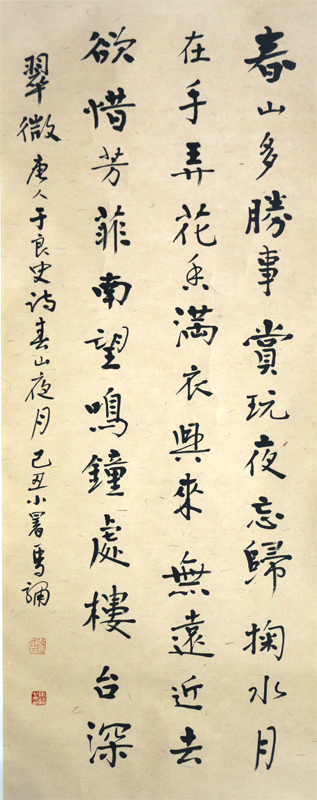 春山多勝事賞玩夜忘歸掬水月
在手弄花香滿衣興來無遠近去
欲惜芳菲南望鳴鐘處樓台深
翠微唐人于良史詩春山夜月己丑小暑